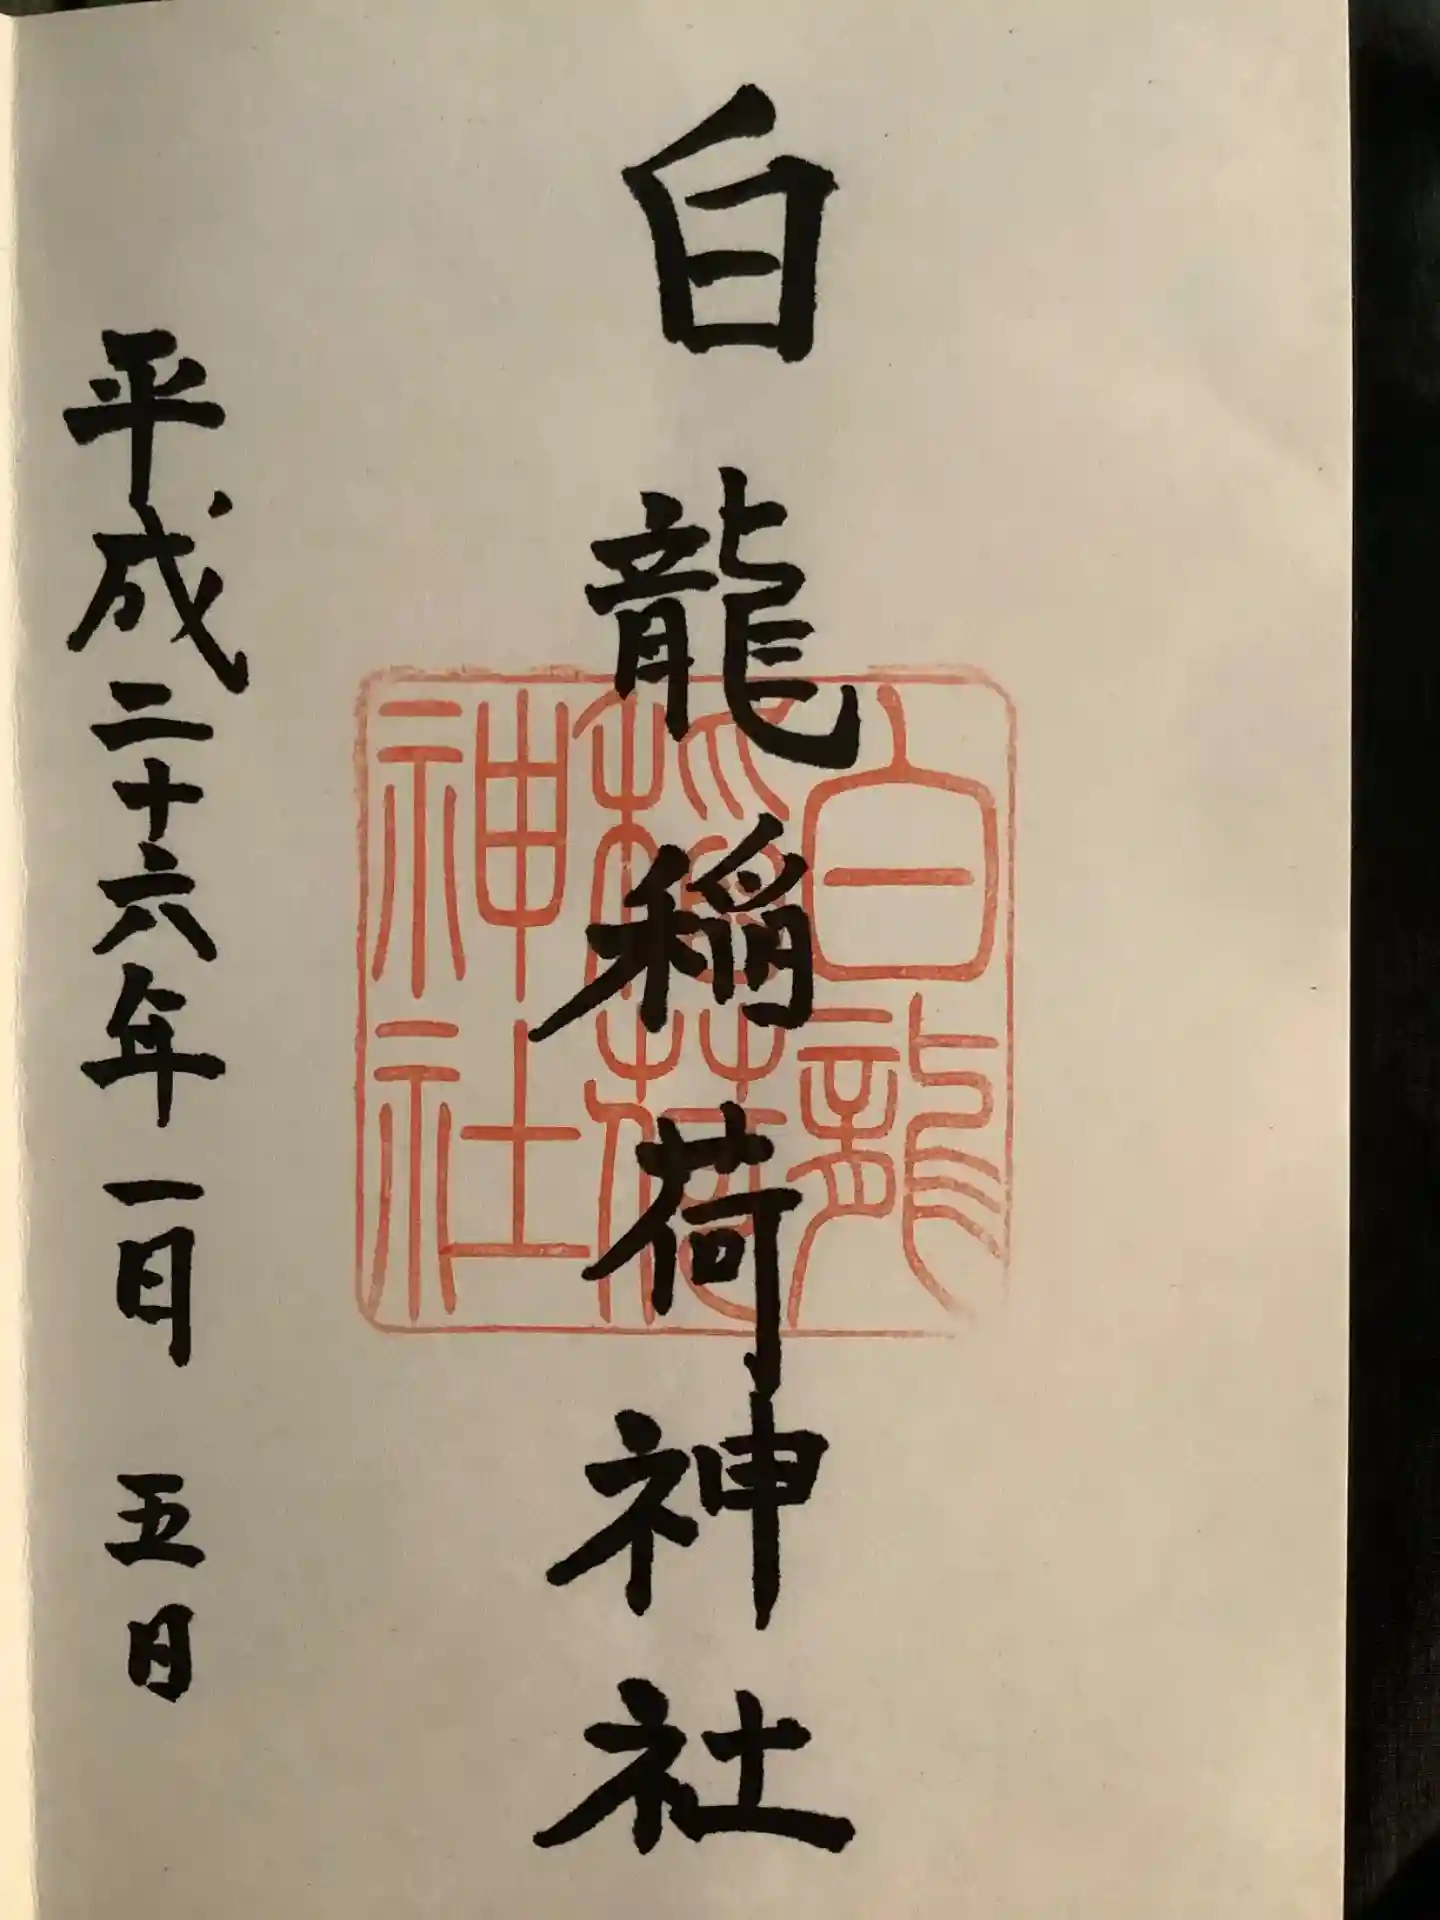 白龍稲荷神社
平成二十六年一月 五日
白龍
稲荷
神社